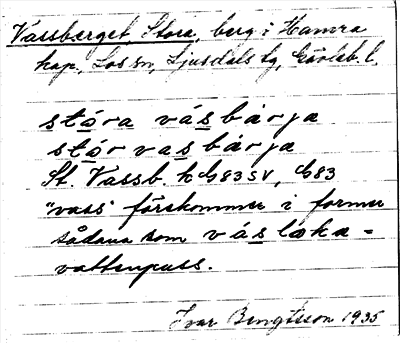 Vassberget, Stora, berg i Hamra
kap., Los sn, Ljusdals tg, Gävleb. l.
stóra vásbárja
stór vasbárja
St. Vassb. k G83SV, G83
"vass" förekommer i former
sådana som váslæka =
vattenpuss.
Ivar Bengtsson 1935